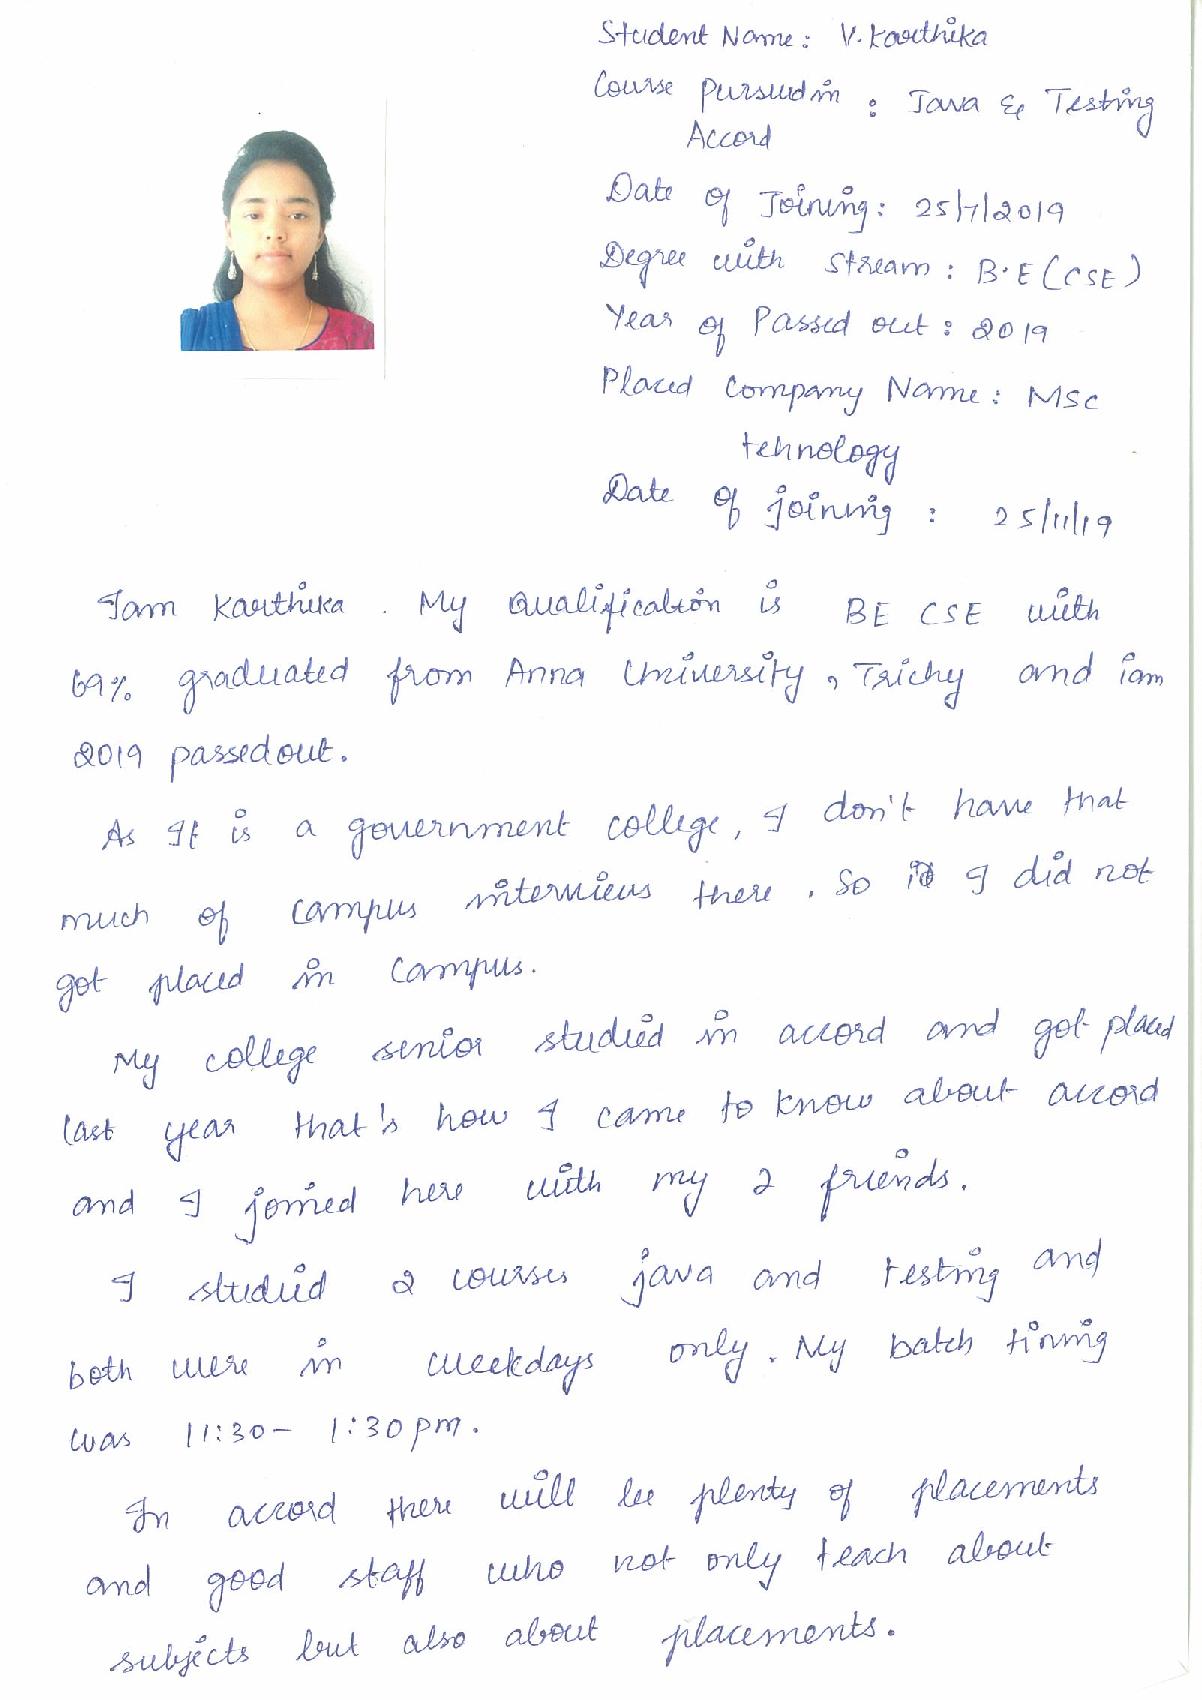 Student Name: V. Karthika
Course Pursud in : Java & Testing
Accord
Date of Joining: 25/7/2019
Degree with stream: B.E (CSE)
Year of Passed out: 2019
Placed Company Name: MSC
tehnology
Date of joining : 25/11/19
I am Karthika. My Qualification is BE CSE with
69% graduated from Anna University, Trichy and iam
2019 passedout.
As It is a government college, I don't have that
much of campus interviews there. So I did not
got placed in campus.
My college senior studied in accord and got placed
last year that's how I came to know about accord
and I joined here with my 2 friends.
I studied 2 courses java and testing and
both were in weekdays only. My batch timing
was 11:30- 1:30pm.
In accord there will be plenty of placements
and good staff who not only teach about
subjects but also about placements.